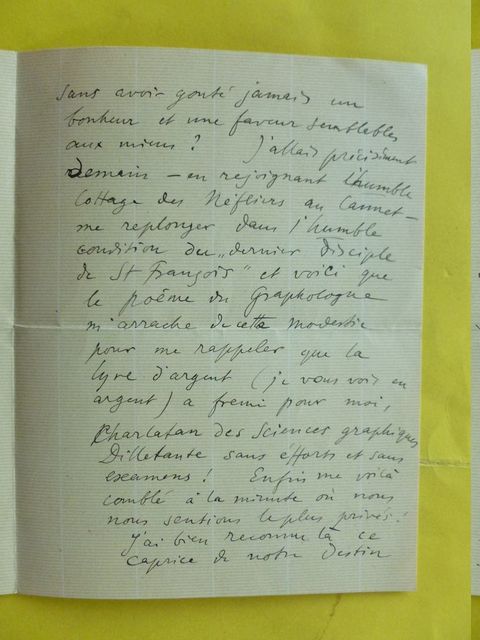 sans avoir gouté jamais un
bonheur et une faveur semblables
aux miens ? J'allais précisément
Demain – en rejoignant l'humble
Cottage des Néfliers au Cannet –
me replonger dans l'humble
condition du „dernier Disciple
de St François" et voici que
le poème du Graphologue
m'arrache de cette modestie
pour me rappeler que la
lyre d'argent (je vous vois en
argent) a fremi pour moi,
Charlatan des Sciences graphiques
Dilletante sans efforts et sans
examens ! Enfin me voilà
comblé à la minute où nous
nous sentions le plus privés !
J'ai bien reconnu là ce
caprice de notre Destin